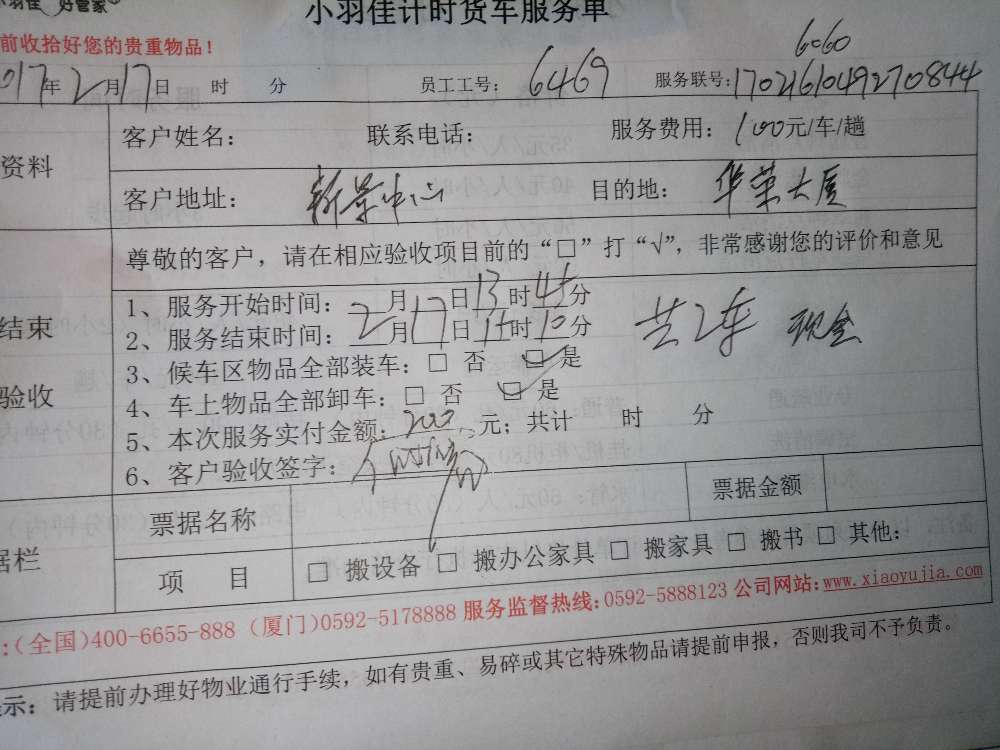 小羽佳 好管家®
小羽佳计时货车服务单
前收拾好您的贵重物品！
6060
017年2月17日 时 分 员工工号：6469 服务联号：1702161049270844
资料
客户姓名： 联系电话： 服务费用：100元/车/趟
客户地址：新景中心 目的地：华荣大厦
尊敬的客户，请在相应验收项目前的“□”打“√”，非常感谢您的评价和意见
结束
验收
1、服务开始时间：2月17日13时45分
2、服务结束时间：2月17日14时10分
共2车 现金
3、候车区物品全部装车：□ 否 ☑ 是
4、车上物品全部卸车：□ 否 ☑ 是
5、本次服务实付金额：200元；共计 时 分
6、客户验收签字：
据栏
票据名称 票据金额
项 目 □ 搬设备 □ 搬办公家具 □ 搬家具 □ 搬书 □ 其他：
：(全国)400-6655-888 (厦门)0592-5178888 服务监督热线：0592-5888123 公司网站：www.xiaoyujia.com
示：请提前办理好物业通行手续，如有贵重、易碎或其它特殊物品请提前申报，否则我司不予负责。